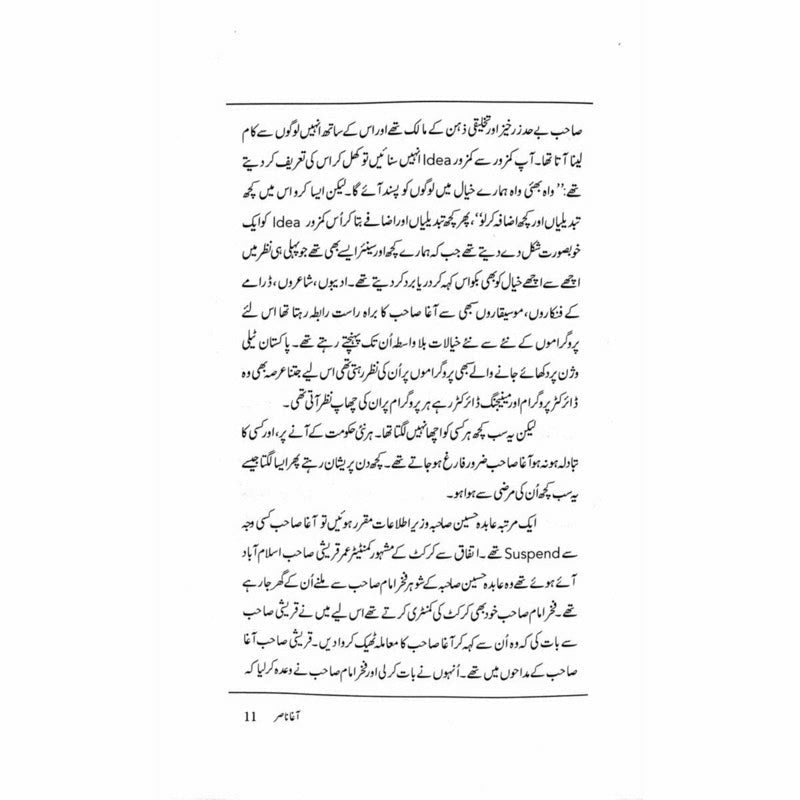 صاحب بے حد زرخیز اور تخلیقی ذہن کے مالک تھے اور اس کے ساتھ انہیں لوگوں سے کام
لینا آتا تھا۔ آپ کمزور سے کمزور Idea انہیں سنائیں تو کھل کر اس کی تعریف کر دیتے
تھے: ’’واہ بھئی واہ ہمارے خیال میں لوگوں کو پسند آئے گا۔ لیکن ایسا کرو اس میں کچھ
تبدیلیاں اور کچھ اضافہ کر لو‘‘، پھر کچھ تبدیلیاں اور اضافے بتا کر اُس کمزور Idea کو ایک
خوبصورت شکل دے دیتے تھے جب کہ ہمارے کچھ اور سینئر ایسے بھی تھے جو پہلی ہی نظر میں
اچھے سے اچھے خیال کو بھی بکواس کہہ کر دریا برد کر دیتے تھے۔ ادیبوں، شاعروں، ڈرامے
کے فنکاروں، موسیقاروں سبھی سے آغا صاحب کا براہ راست رابطہ رہتا تھا اس لئے
پروگراموں کے نئے سے نئے خیالات بلاواسطہ اُن تک پہنچتے رہتے تھے۔ پاکستان ٹیلی
وژن پر دکھائے جانے والے سبھی پروگراموں پر اُن کی نظر رہتی تھی اس لیے جتنا عرصہ بھی وہ
ڈائرکٹر پروگرام اور مینیجنگ ڈائرکٹر رہے ہر پروگرام پر ان کی چھاپ نظر آتی تھی۔
لیکن یہ سب کچھ ہر کسی کو اچھا نہیں لگتا تھا۔ ہر نئی حکومت کے آنے پر، اور کسی کا
تبادلہ ہو نہ ہو آغا صاحب ضرور فارغ ہو جاتے تھے۔ کچھ دن پریشان رہتے پھر ایسا لگتا جیسے
یہ سب کچھ اُن کی مرضی سے ہوا ہو۔
ایک مرتبہ عابدہ حسین صاحبہ وزیر اطلاعات مقرر ہوئیں تو آغا صاحب کسی وجہ
سے Suspend تھے۔ اتفاق سے کرکٹ کے مشہور کمنٹیٹر عمر قریشی صاحب اسلام آباد
آئے ہوئے تھے وہ عابدہ حسین صاحبہ کے شوہر فخر امام صاحب سے ملنے اُن کے گھر جا رہے
تھے۔ فخر امام صاحب خود بھی کرکٹ کی کمنٹری کرتے تھے اس لیے میں نے قریشی صاحب
سے بات کی کہ وہ اُن سے کہہ کر آغا صاحب کا معاملہ ٹھیک کروا دیں۔ قریشی صاحب آغا
صاحب کے مداحوں میں تھے۔ اُنہوں نے بات کر لی اور فخر امام صاحب نے وعدہ کر لیا کہ
آغا ناصر 11